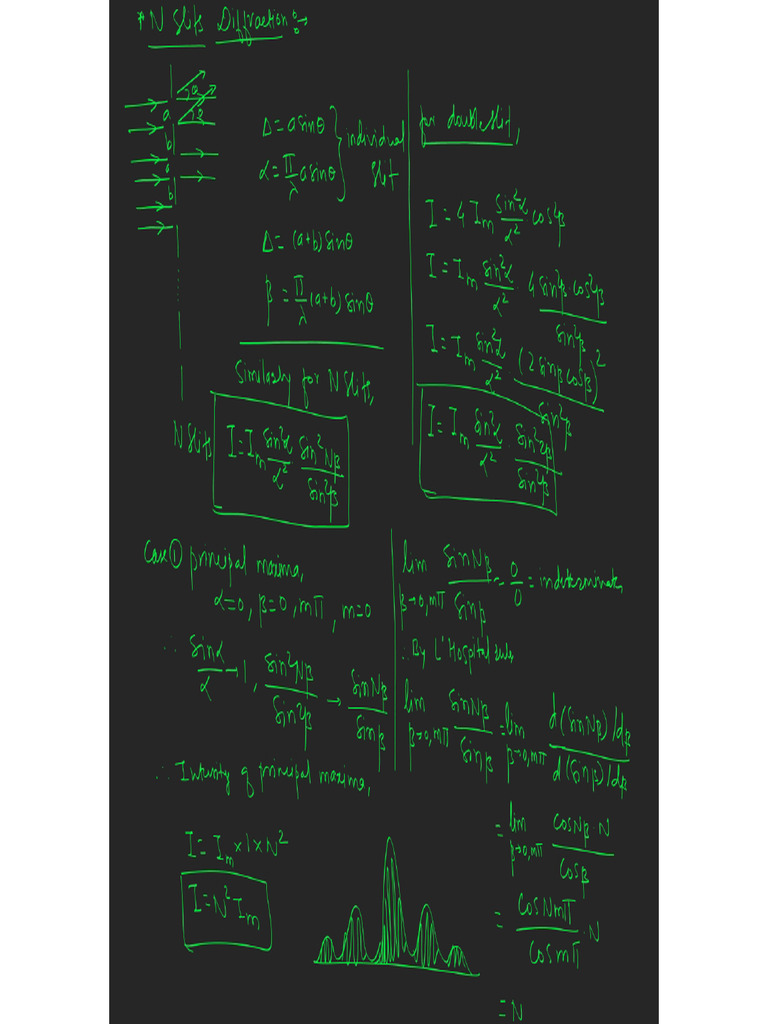 * N Slits Diffraction :→
a
b
a
b
Δ = a sinθ
α = π/λ a sinθ
} individual slit
Δ = (a+b) sinθ
β = π/λ (a+b) sinθ
Similarly for N slits,
N slits
I = I_m sin²α/α² sin²Nβ/sin²β
for double slit,
I = 4 I_m sin²α/α² cos²β
I = I_m sin²α/α² 4 sin²β·cos²β/sin²β
I = I_m sin²α/α² (2 sinβ cosβ)²/sin²β
I = I_m sin²α/α² · sin²2β/sin²β
Case ① principal maxima,
α=0, β=0, mπ, m=0
∴ sinα/α → 1, sin²Nβ/sin²β → sinNβ/sinβ
∴ Intensity of principal maxima,
I = I_m × 1 × N²
I = N² I_m
lim β→0, mπ sinNβ/sinβ = 0/0 = indeterminate
∴ By L'Hospital rule
lim β→0, mπ sinNβ/sinβ = lim β→0, mπ d(sinNβ)/dβ / d(sinβ)/dβ
= lim β→0, mπ cosNβ·N/cosβ
= cosNmπ/cosmπ · N
= N